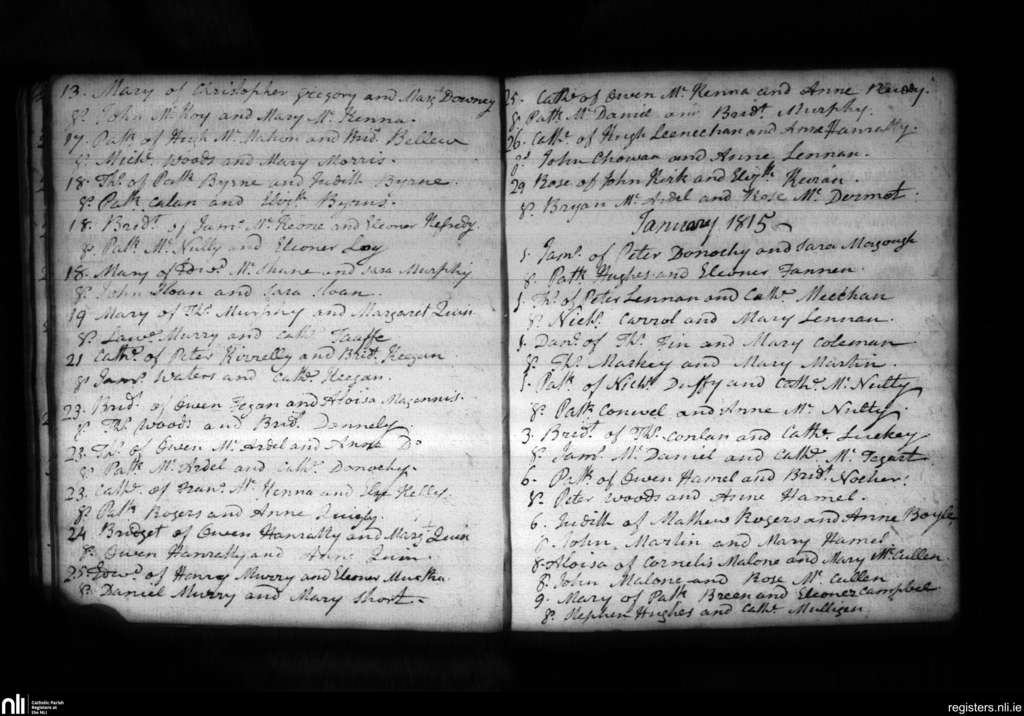 13. Mary of Christopher Gregory and Marg.t Downey
Sp. John McKoy and Mary Mc Kenna.
17. Patk of Hugh Mc Mahon and Brid. Bellew
Sp. Mich. Woods and Mary Morris.
18. Ths. of Patk Byrne and Judith Byrne.
Sp. Patk Calan and Byrns.
18. Bridt. of Jams. Mc Keone and Eleoner
Sp. Patk. Mc Nully and Eleoner Loy
18. Mary of Edwd. Mc Shane and Sara Murphy
Sp. John Sloan and Sara Sloan.
19 Mary of Ths. Murphy and Margaret Quin
Sp. Lawe. Murry and Cathe. Taaffe
21 Cathe. of Peter Kirrelly and Bridt. Keegan
Sp. Jams. Waters and Cathe. Keegan.
23. Bridt. of Owen Fegan and Aloisa Magennis.
Sp. Ths. Woods and Bridt. Donnely
23. of Owen Mc Ardel and Anne Do
Sp. Patk Mc Ardel and Cathe. Donochy.
23. Cathe. of Frans. Mc Kenna and Kelly.
Sp. Patk Rogers and Anne Quigly.
24 Bridget of Owen Hanratty and Margt Quin
Sp. Owen Hanratty and Anne Quin.
25 Edwd. of Henry Murry and Eleoner Murtha.
Sp. Daniel Murry and Mary Short.
25. Cathe of Owen Mc Kenna and Anne
Sp. Patk Mc Daniel and Bridt. Murphy.
26. Cathe. of Hugh Leneechan and Anne Hanratty.
Sp. John Chowan and Anne Lennan.
29 Rose of John Kirk and Keeran.
Sp. Bryan Mc Ardel and Rose Mc Dermot.
January 1815
1. Jams. of Peter Donochy and Sara Magough
Sp. Patk Hughes and Eleoner Fannen.
1. Ths. of Peter Lennan and Cathe Meechan
Sp. Nichs. Carrol and Mary Lennan.
1. Danl. of Ths. Fin and Mary Coleman
Sp. Ths. Mackey and Mary Martin.
1. Patk of Nichs Duffy and Cathe. Mc Nulty
Sp. Patk Conwel and Anne Mc Nulty.
3. Bridt. of Ths. Conlan and Cathe. Luckey
Sp. Jams. Mc Daniel and Cathe. Mc Tegart.
6. Patk of Owen Hamel and Bridt. Nocher.
Sp. Peter Woods and Anne Hamel.
6. Judith of Mathew Rogers and Anne Boyle
Sp. John Martin and Mary Hamel.
8. Aloisa of Cornelis Malone and Mary Mc Cullen.
Sp. John Malone and Rose Mc Cullen
9. Mary of Patk Breen and Eleoner Campbel
Sp. Stephen Hughes and Cathe Mulligen
nli
Catholic Parish
Registers at
the NLI
registers.nli.ie